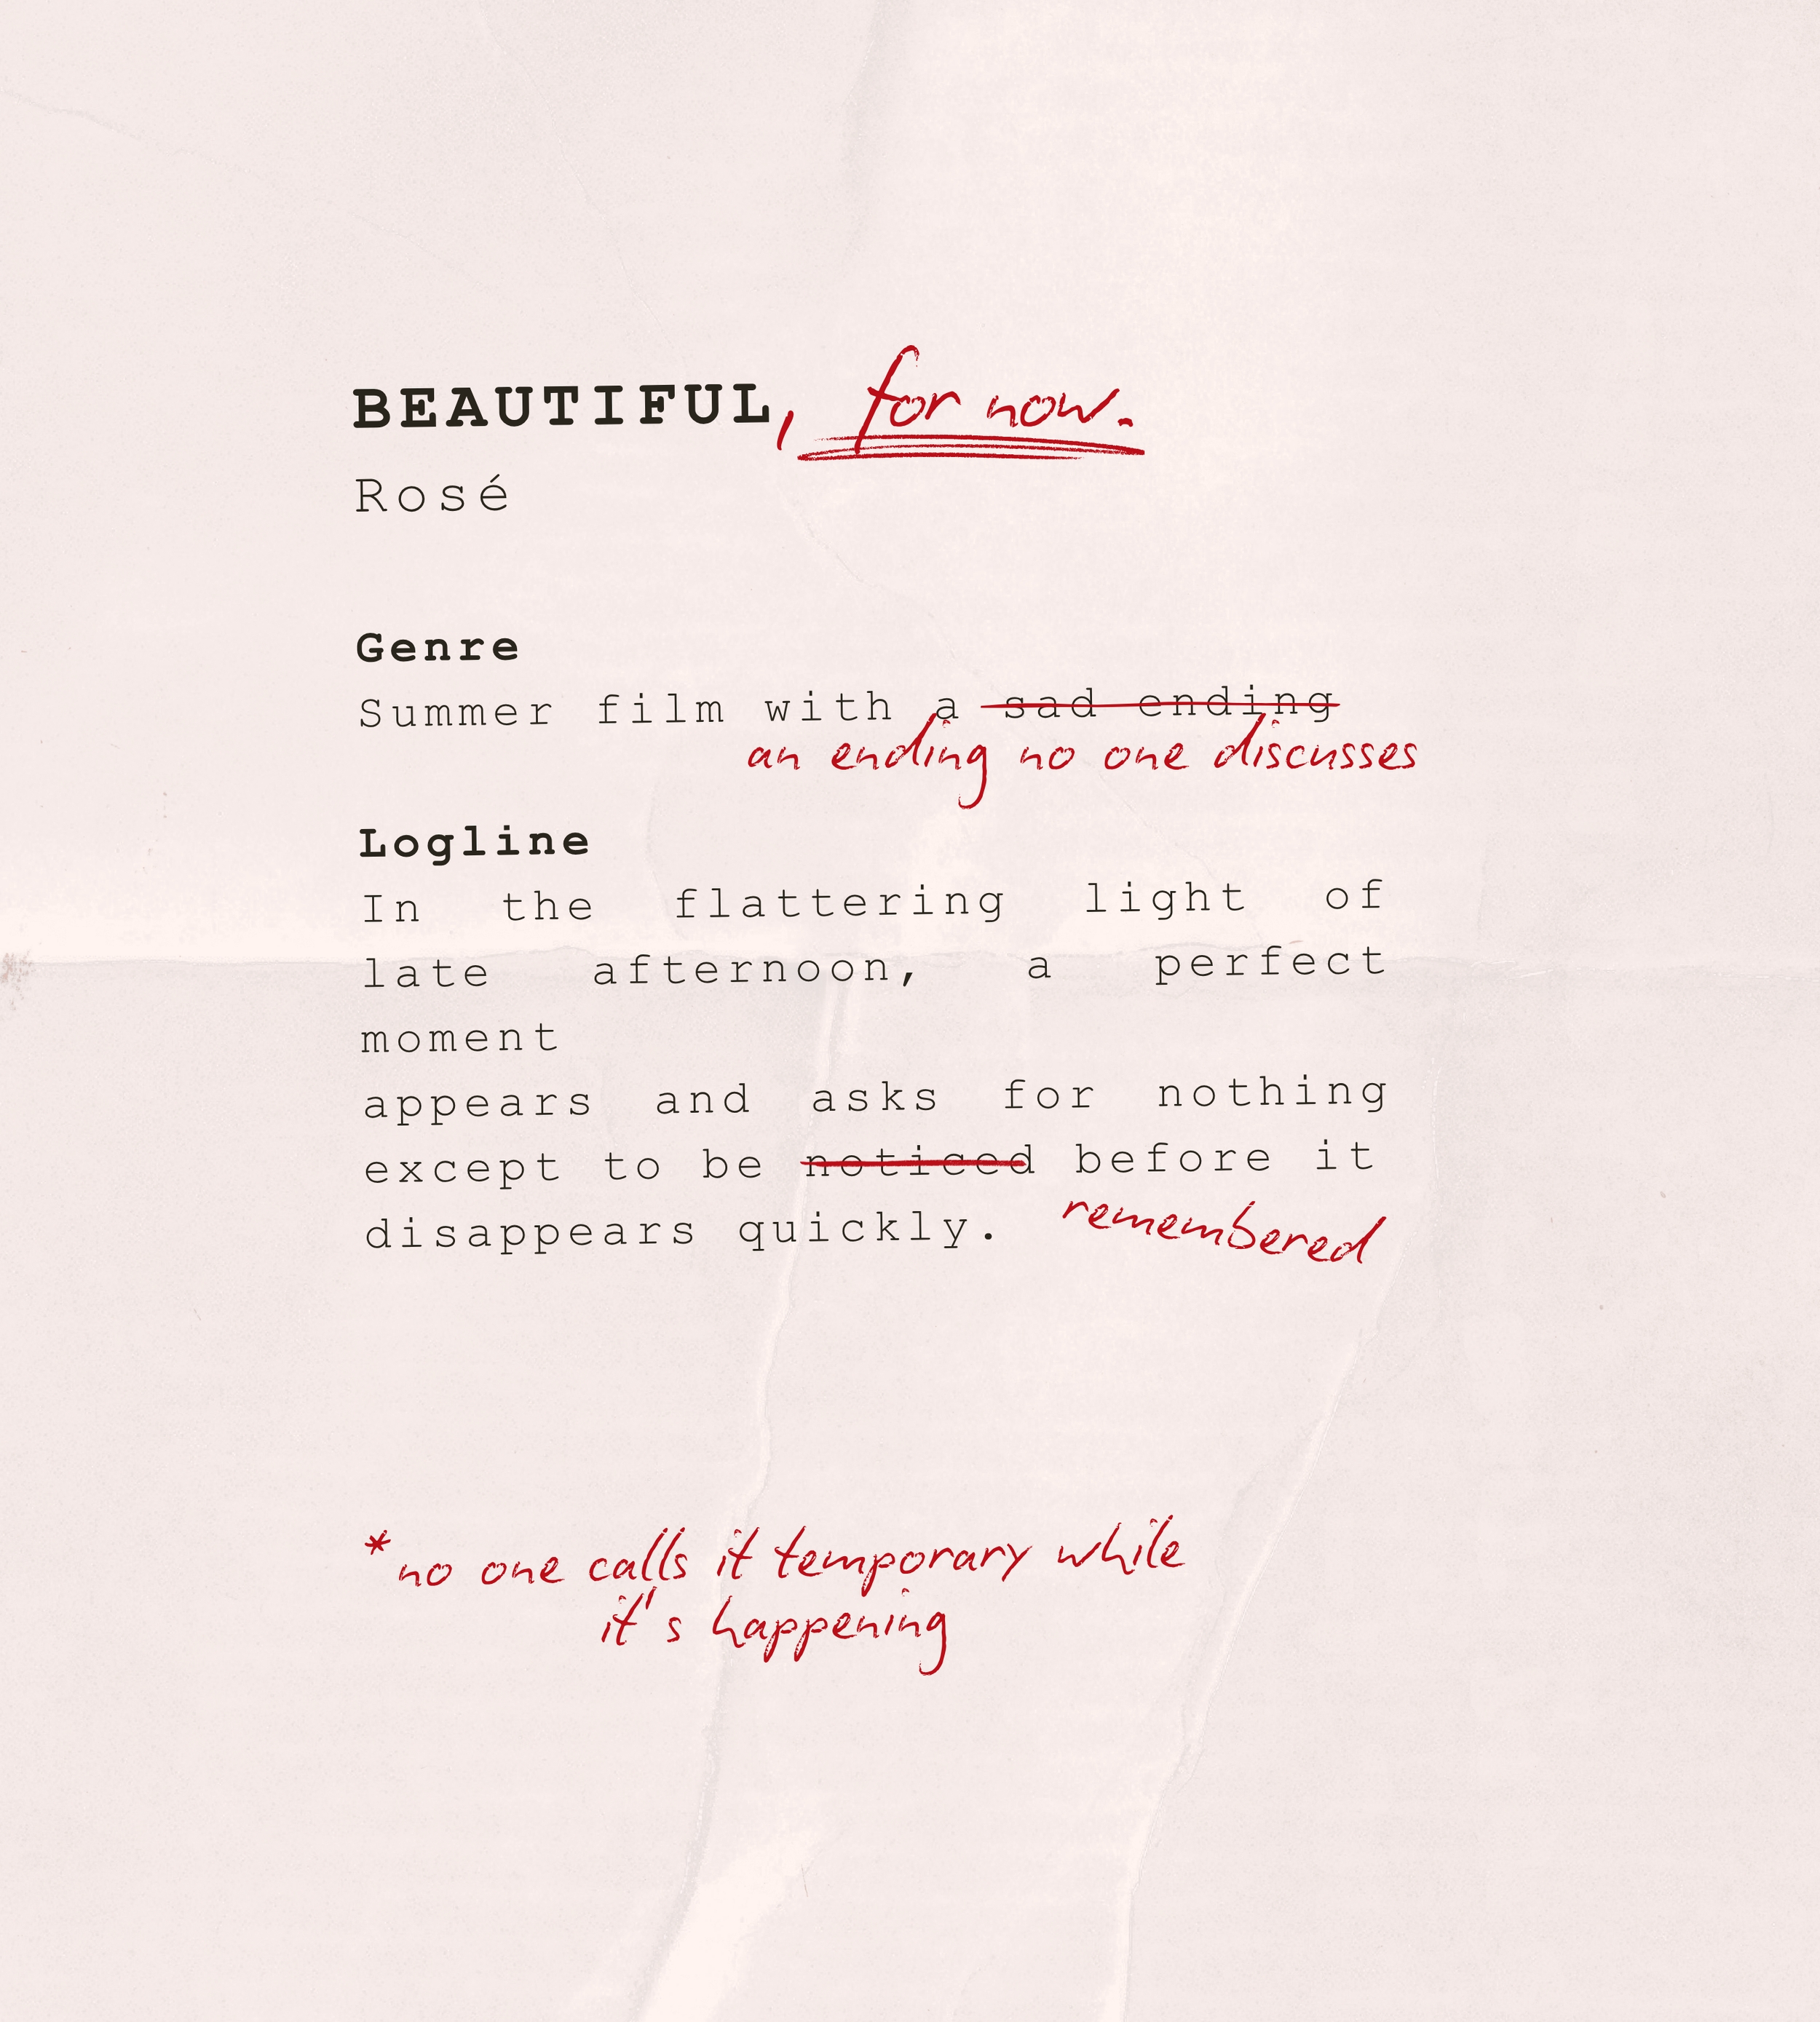 BEAUTIFUL, for now.
Rosé
Genre
Summer film with a sad ending
an ending no one discusses
Logline
In the flattering light of
late afternoon, a perfect
moment
appears and asks for nothing
except to be noticed before it
disappears quickly. remembered
*no one calls it temporary while
it's happening